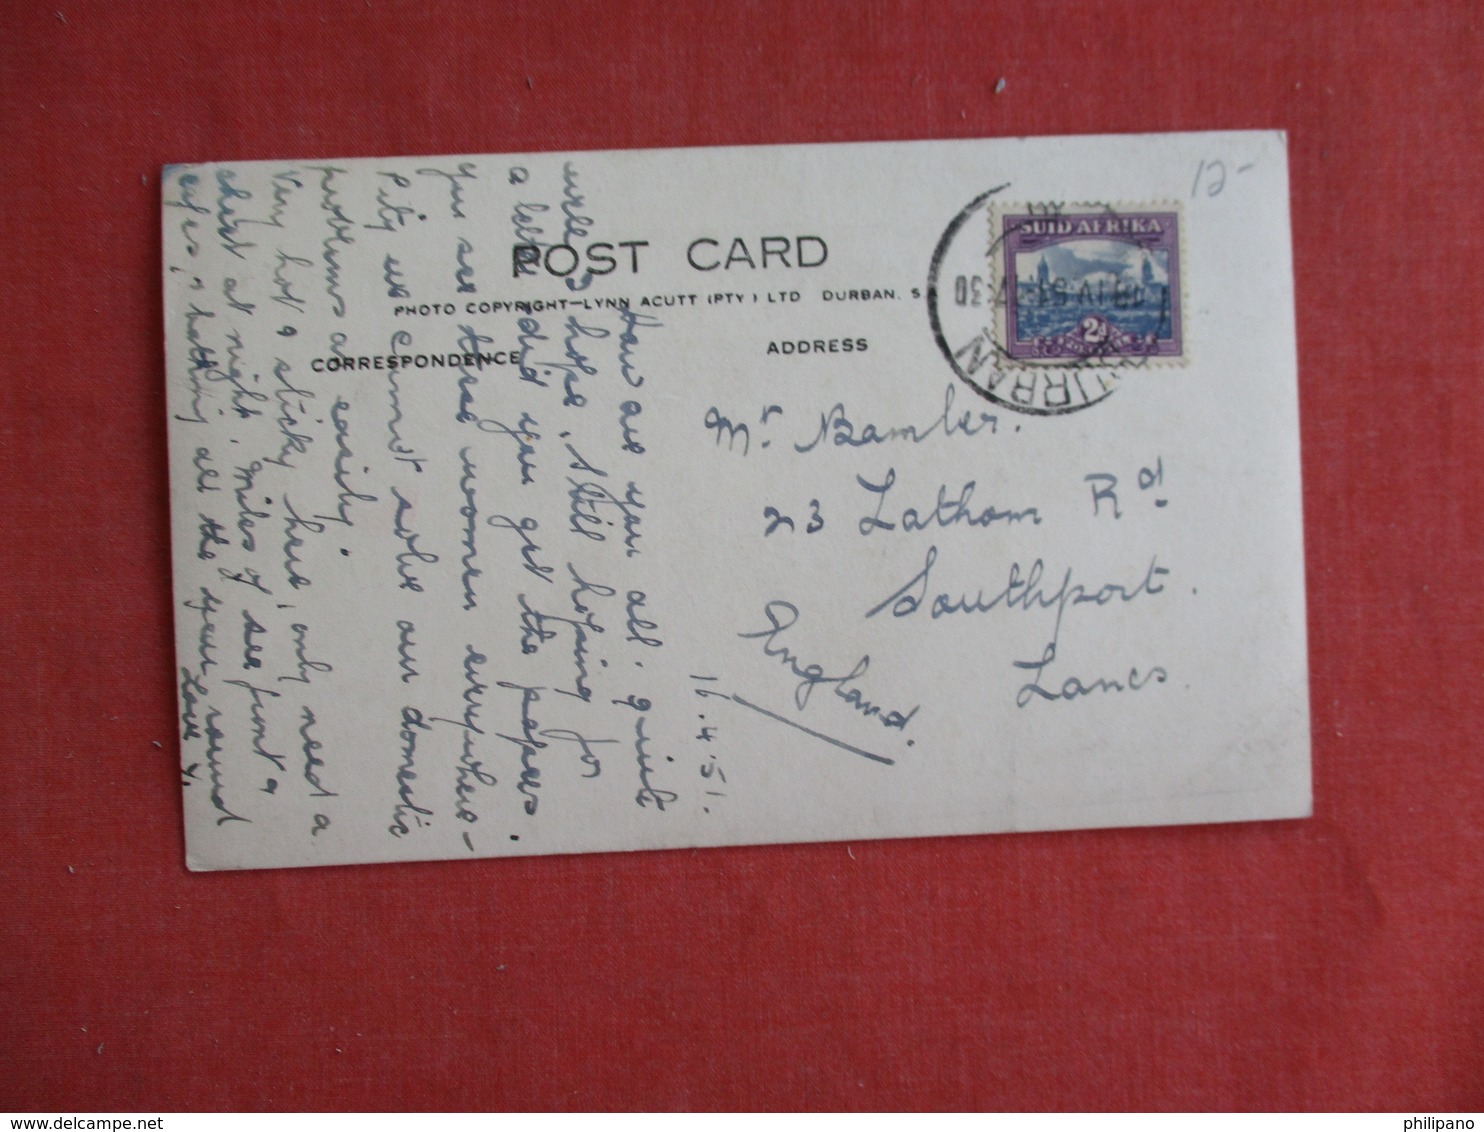 12-
SUID AFRIKA
2d
DURBAN
18 IV 51
7 30
POST CARD
PHOTO COPYRIGHT—LYNN ACUTT (PTY) LTD DURBAN. S
CORRESPONDENCE
ADDRESS
16.4.51.
How are you all. quite
well I hope, still hoping for
a letter did you get the papers.
You see these women everywhere—
Pity we cannot solve our domestic
problems as easily.
Very hot & sticky here, only need a
sheet at night. Miles of sea front &
cafes, & bathing all the year round
Love
Mr Bamber.
23 Lathom Rd
Southport.
Lancs.
England.
philipano